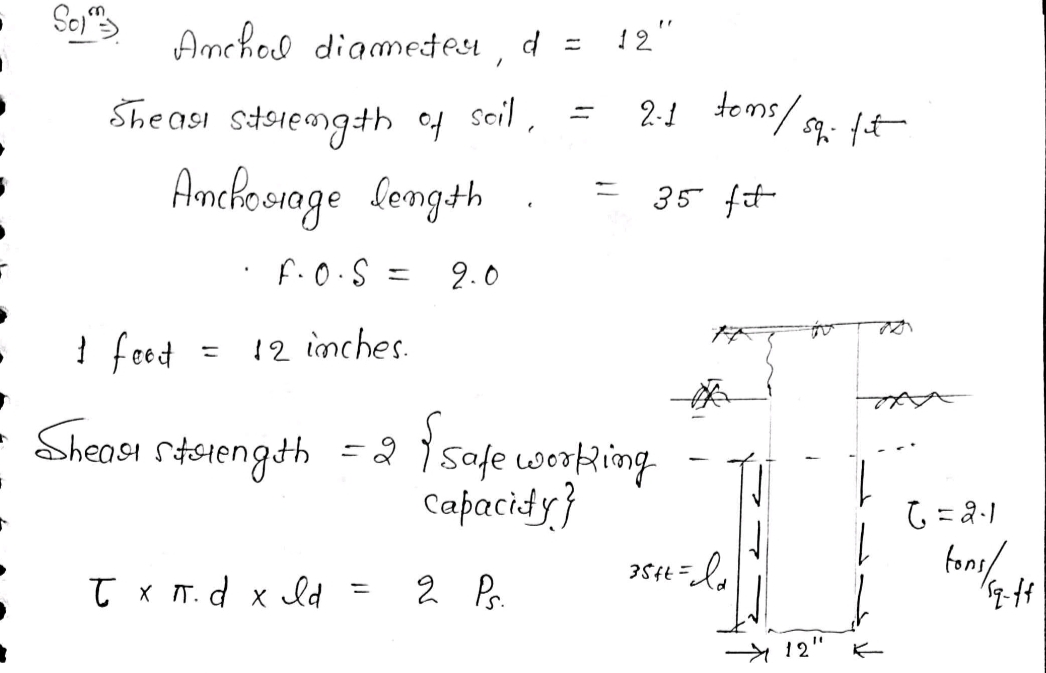 Solⁿ⇒
Anchor diameter, d = 12"
Shear strength of soil, = 2.1 tons/sq. ft
Anchorage length . = 35 ft
. F.O.S = 2.0
1 feet = 12 inches.
Shear strength = 2 {safe working
capacity}
τ x π.d x ld = 2 Ps.
τ = 2.1
tons/sq-ft
35ft = ld
12"